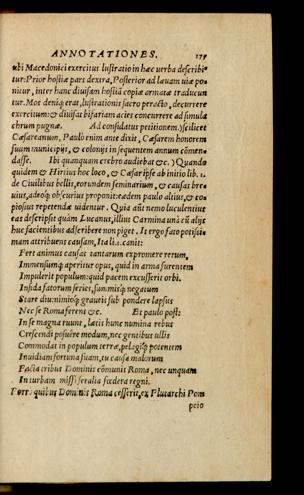 ANNOTATIONES. 179
ubi Macedonici exercitus lustratio in hæc verba describi
tur: Prior hostiæ pars dextra, Posterior ad lævam viæ po-
nitur, inter hanc divisam hostiã copiæ armatæ traducun
tur. Mos deniq; erat, lustrationis sacro peracto, decurrere
exercitum: & divisas bifariam acies concurrere ad simula
chrum pugnæ. Ad consulatus petitionem.) scilicet
Cæsareanum, Paulò enim ante dixit, Cæsarem honorem
suum municipijs, & colonijs in sequentem annum cõmen-
dasse. Ibi quanquam crebro audiebat &c.) Quando
quidem & Hirtius hoc loco, & Cæsar ipse ab initio lib. 1.
de Civilibus bellis, eorundem seminarium, & causas bre
vius, adeoq; obscurius proponit: eædem paulo altius, & co
piosius repetendæ videntur. Quia aũt nemo luculentius
eas descripsit quàm Lucanus, illius Carmina unà cũ alijs
huc facientibus adscribere non piget. Is ergo fato potissi-
mam attribuens causam, Ita li.1. canit:
Fert animus causas tantarum expromere rerum,
Immensumq; aperitur opus, quid in arma furentem
Impulerit populum: quid pacem excusserit orbi.
Invida fatorum series, summisq; negatum
Stare diu: nimioq; graveis sub pondere lapsus
Nec se Roma ferens &c. Et paulo pòst:
In se magna ruunt, lætis hunc numina rebus
Crescendi posuêre modum, nec gentibus ullis
Commodat in populum terræ, pelagiq; potentem
Invidiam fortuna suam, tu causa malorum
Facta tribus Dominis cõmunis Roma, nec unquam
In turbam missi feralia fœdera regni.
Porrò quibus Dominis Roma cesserit, ex Plutarchi Pom
peio